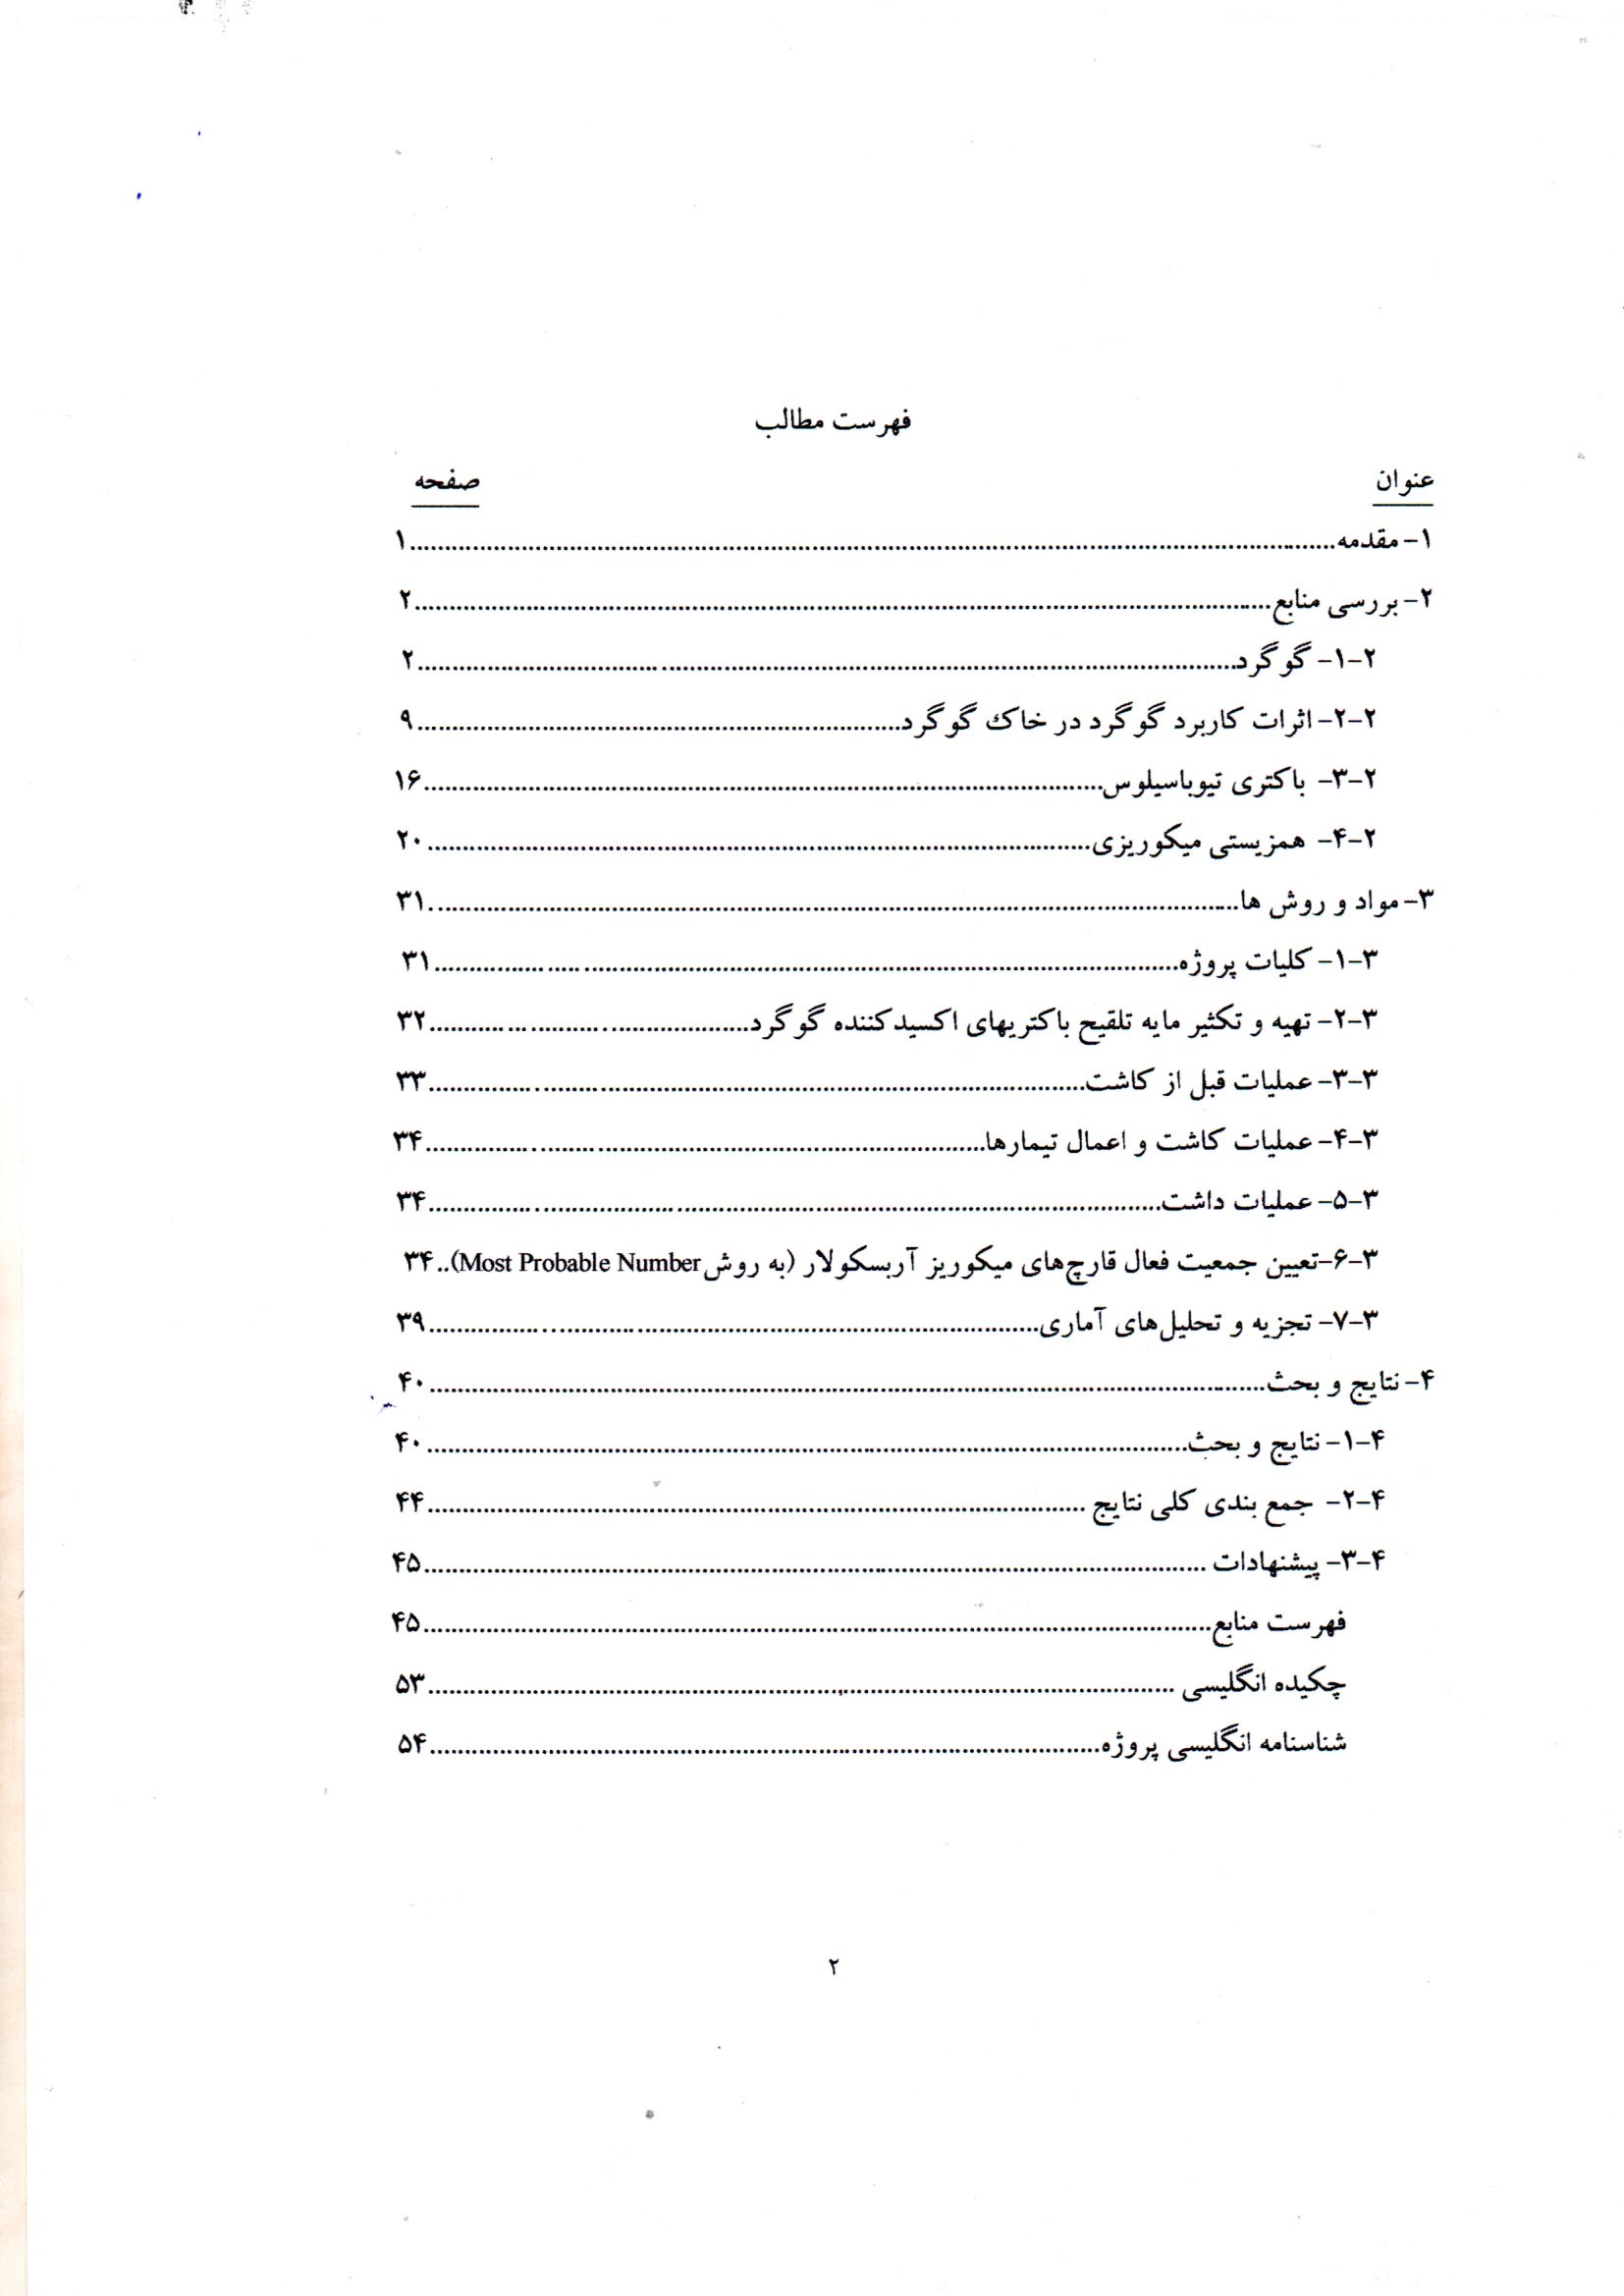 فهرست مطالب
عنوان صفحه
۱- مقدمه ۱
۲- بررسی منابع ۲
۲-۱- گوگرد ۲
۲-۲- اثرات کاربرد گوگرد در خاک گوگرد ۹
۲-۳- باکتری تیوباسیلوس ۱۶
۲-۴- همزیستی میکوریزی ۲۰
۳- مواد و روش ها ۳۱
۳-۱- کلیات پروژه ۳۱
۳-۲- تهیه و تکثیر مایه تلقیح باکتریهای اکسیدکننده گوگرد ۳۲
۳-۳- عملیات قبل از کاشت ۳۳
۳-۴- عملیات کاشت و اعمال تیمارها ۳۴
۳-۵- عملیات داشت ۳۴
۳-۶-تعیین جمعیت فعال قارچ‌های میکوریز آربسکولار (به روش Most Probable Number)..۳۴
۳-۷- تجزیه و تحلیل‌های آماری ۳۹
۴- نتایج و بحث ۴۰
۴-۱- نتایج و بحث ۴۰
۴-۲- جمع بندی کلی نتایج ۴۴
۴-۳- پیشنهادات ۴۵
فهرست منابع ۴۵
چکیده انگلیسی ۵۳
شناسنامه انگلیسی پروژه ۵۴
۲